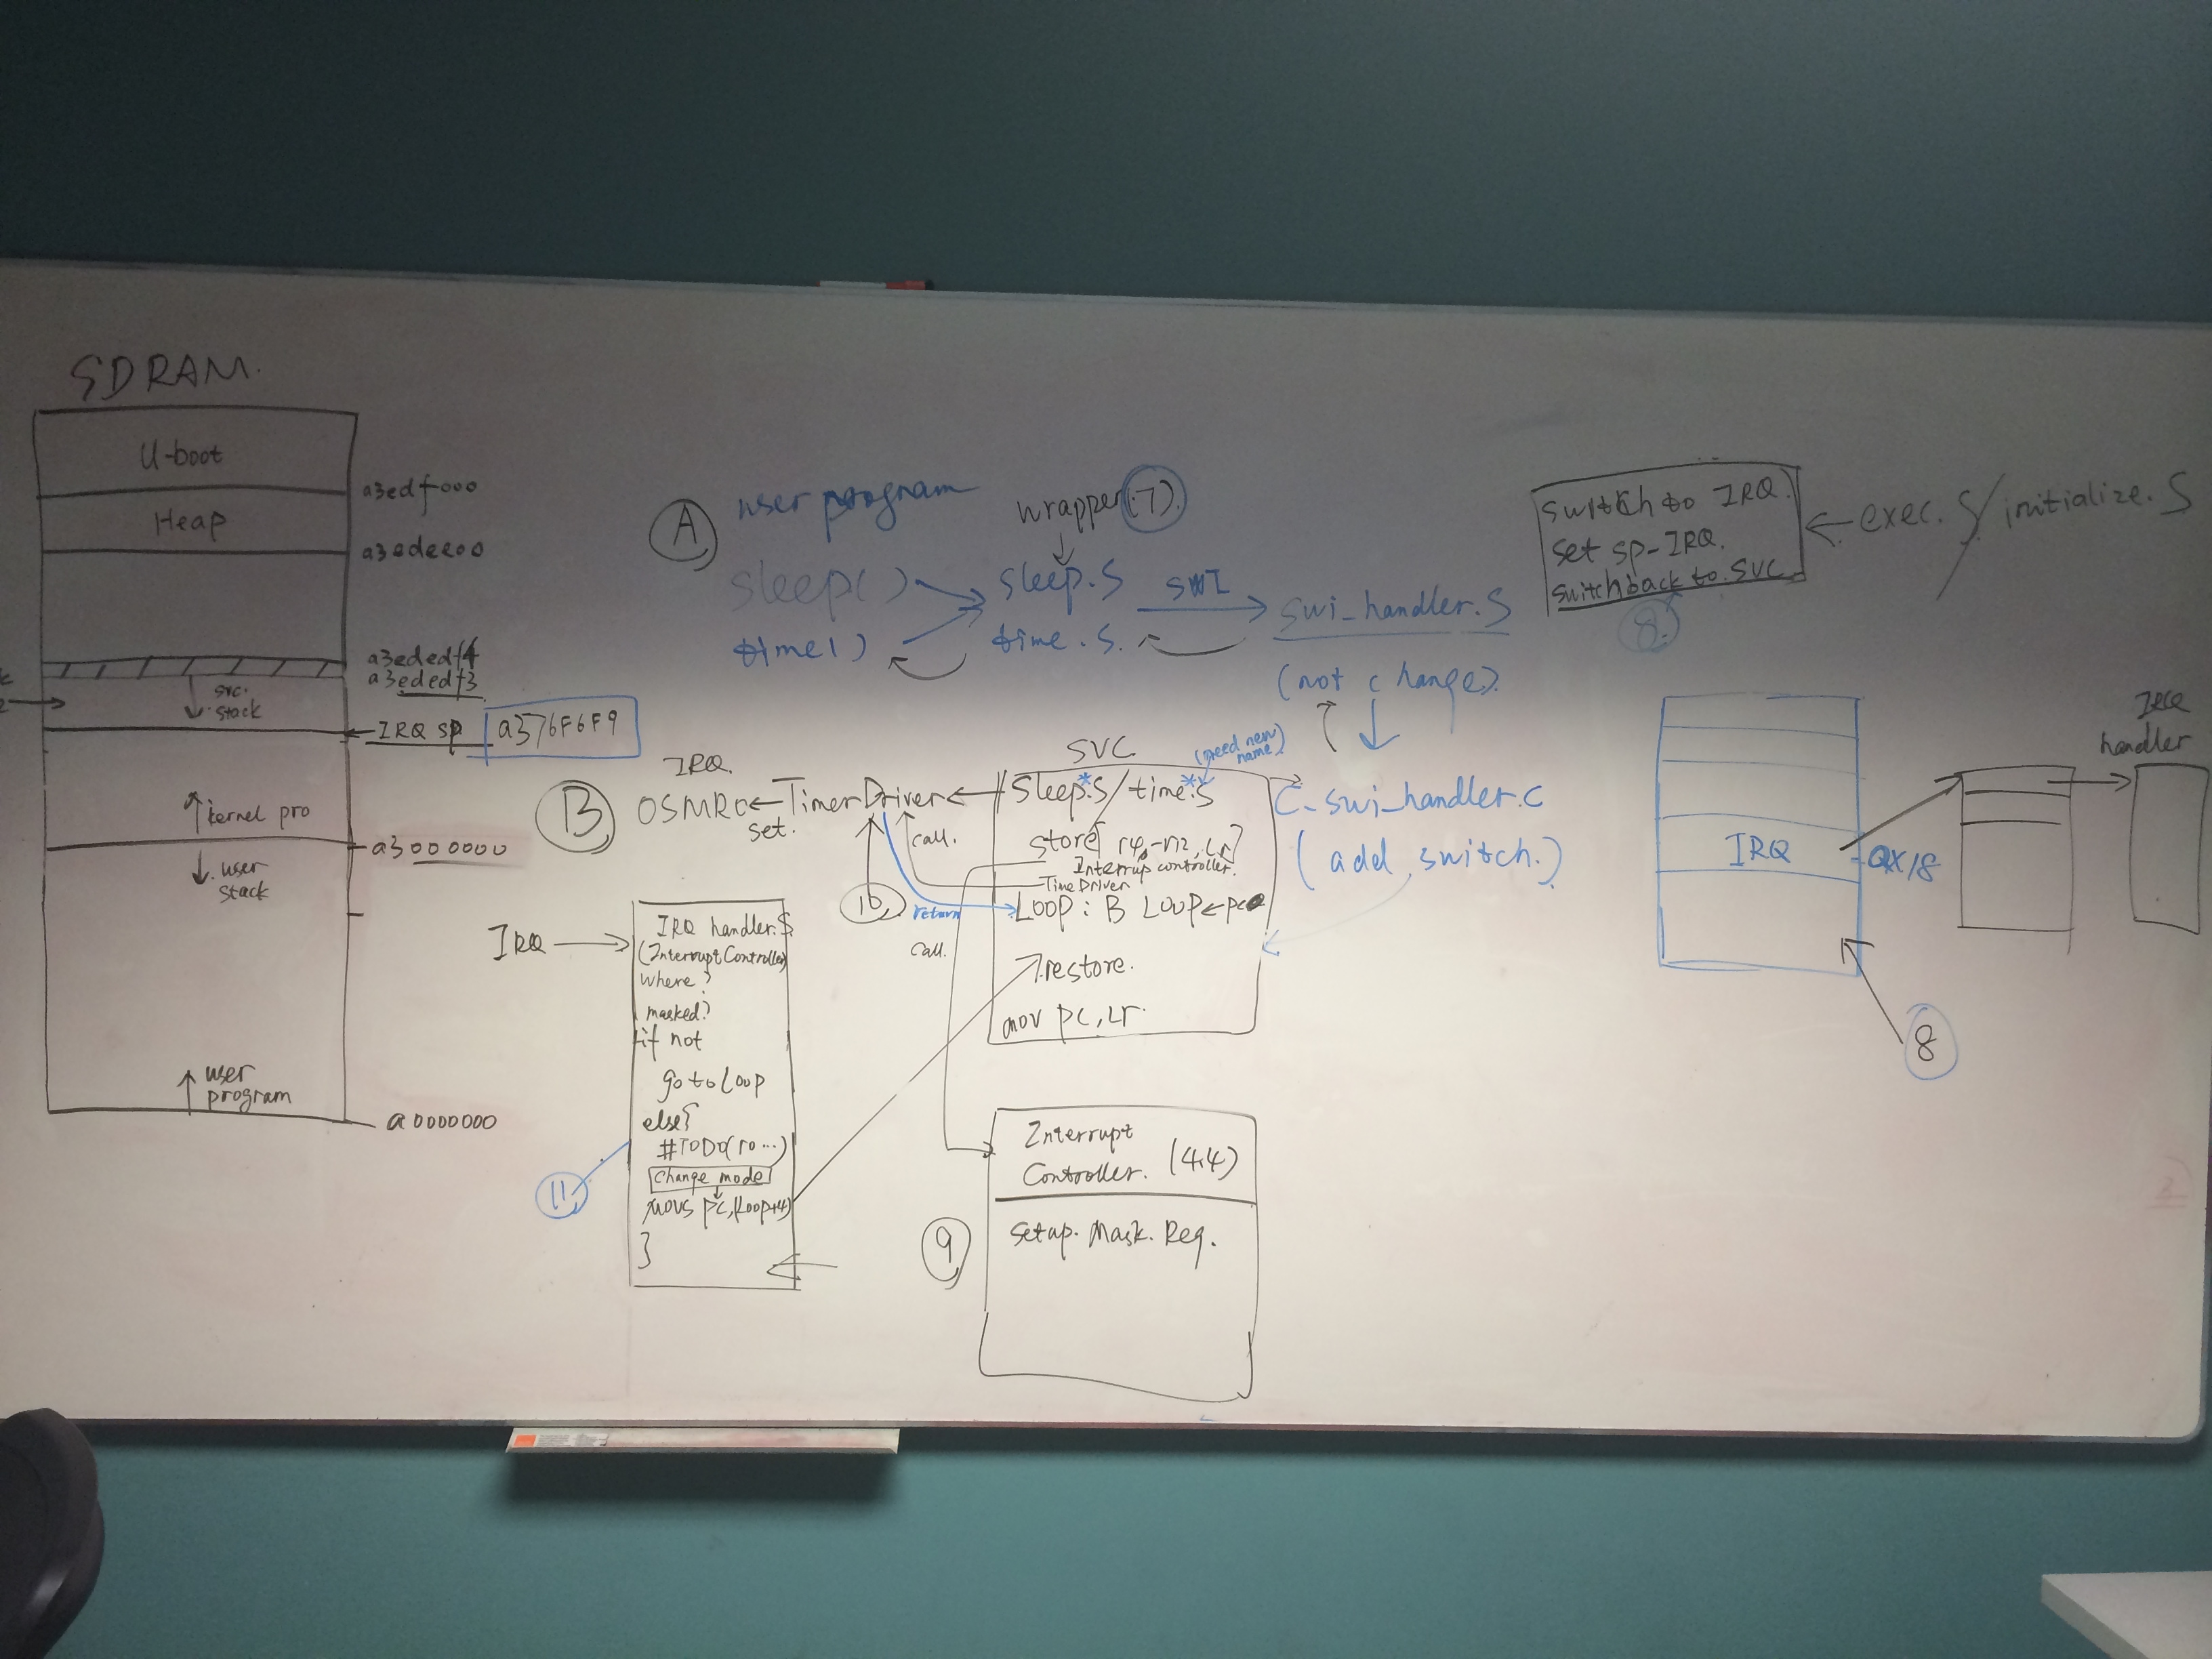 SDRAM.
U-boot
a3edf000
Heap
a3edee00
a3ededf4
a3ededf3
svc.
stack
IRQ sp
a376F6F9
kernel pro
a3000000
user
stack
user
program
a0000000
A
user program
wrapper(7).
sleep()
sleep.S
SWI
swi_handler.S
time()
time.S.
(not change).
switch to IRQ.
set sp-IRQ.
switch back to SVC
exec.S/initialize.S
8.
B
IRQ.
OSMR0←Timer Driver
set.
SVC
(need new
name)
Sleep*.S/time*.S
store[r4-r12, Lr]
Interrup controller.
Time Driver
Loop: B Loop←pc
restore.
mov pc, Lr.
call.
10
return
call.
C_swi_handler.c
(add switch.)
IRQ
IRQ handler.S
(Interrupt Controller)
where?
masked?
if not
go to Loop
else{
#TODO(ro...)
change mode
movs pc,(Loop+4)
}
11
Interrupt
Controller. (4.4)
Setup. Mask. Reg.
9
IRQ
0x18
8
IRQ
handler